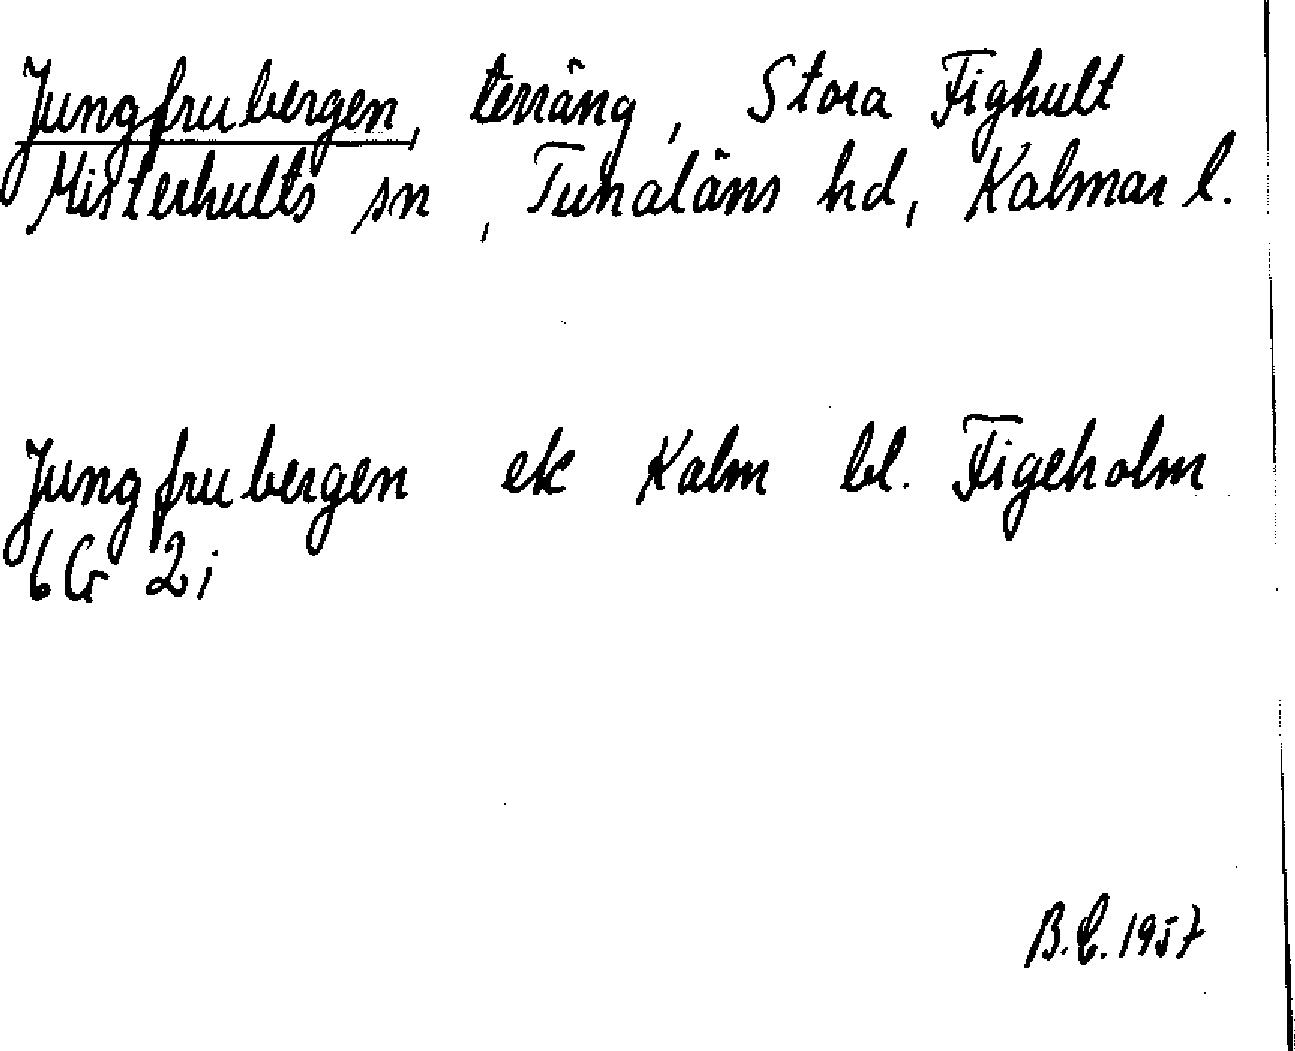 Jungfrubergen, terräng, Stora Fighult
Misterhults sn, Tunaläns hd, Kalmar l.
Jungfrubergen ek Kalm bl. Figeholm
6G 2i
B.C. 1957